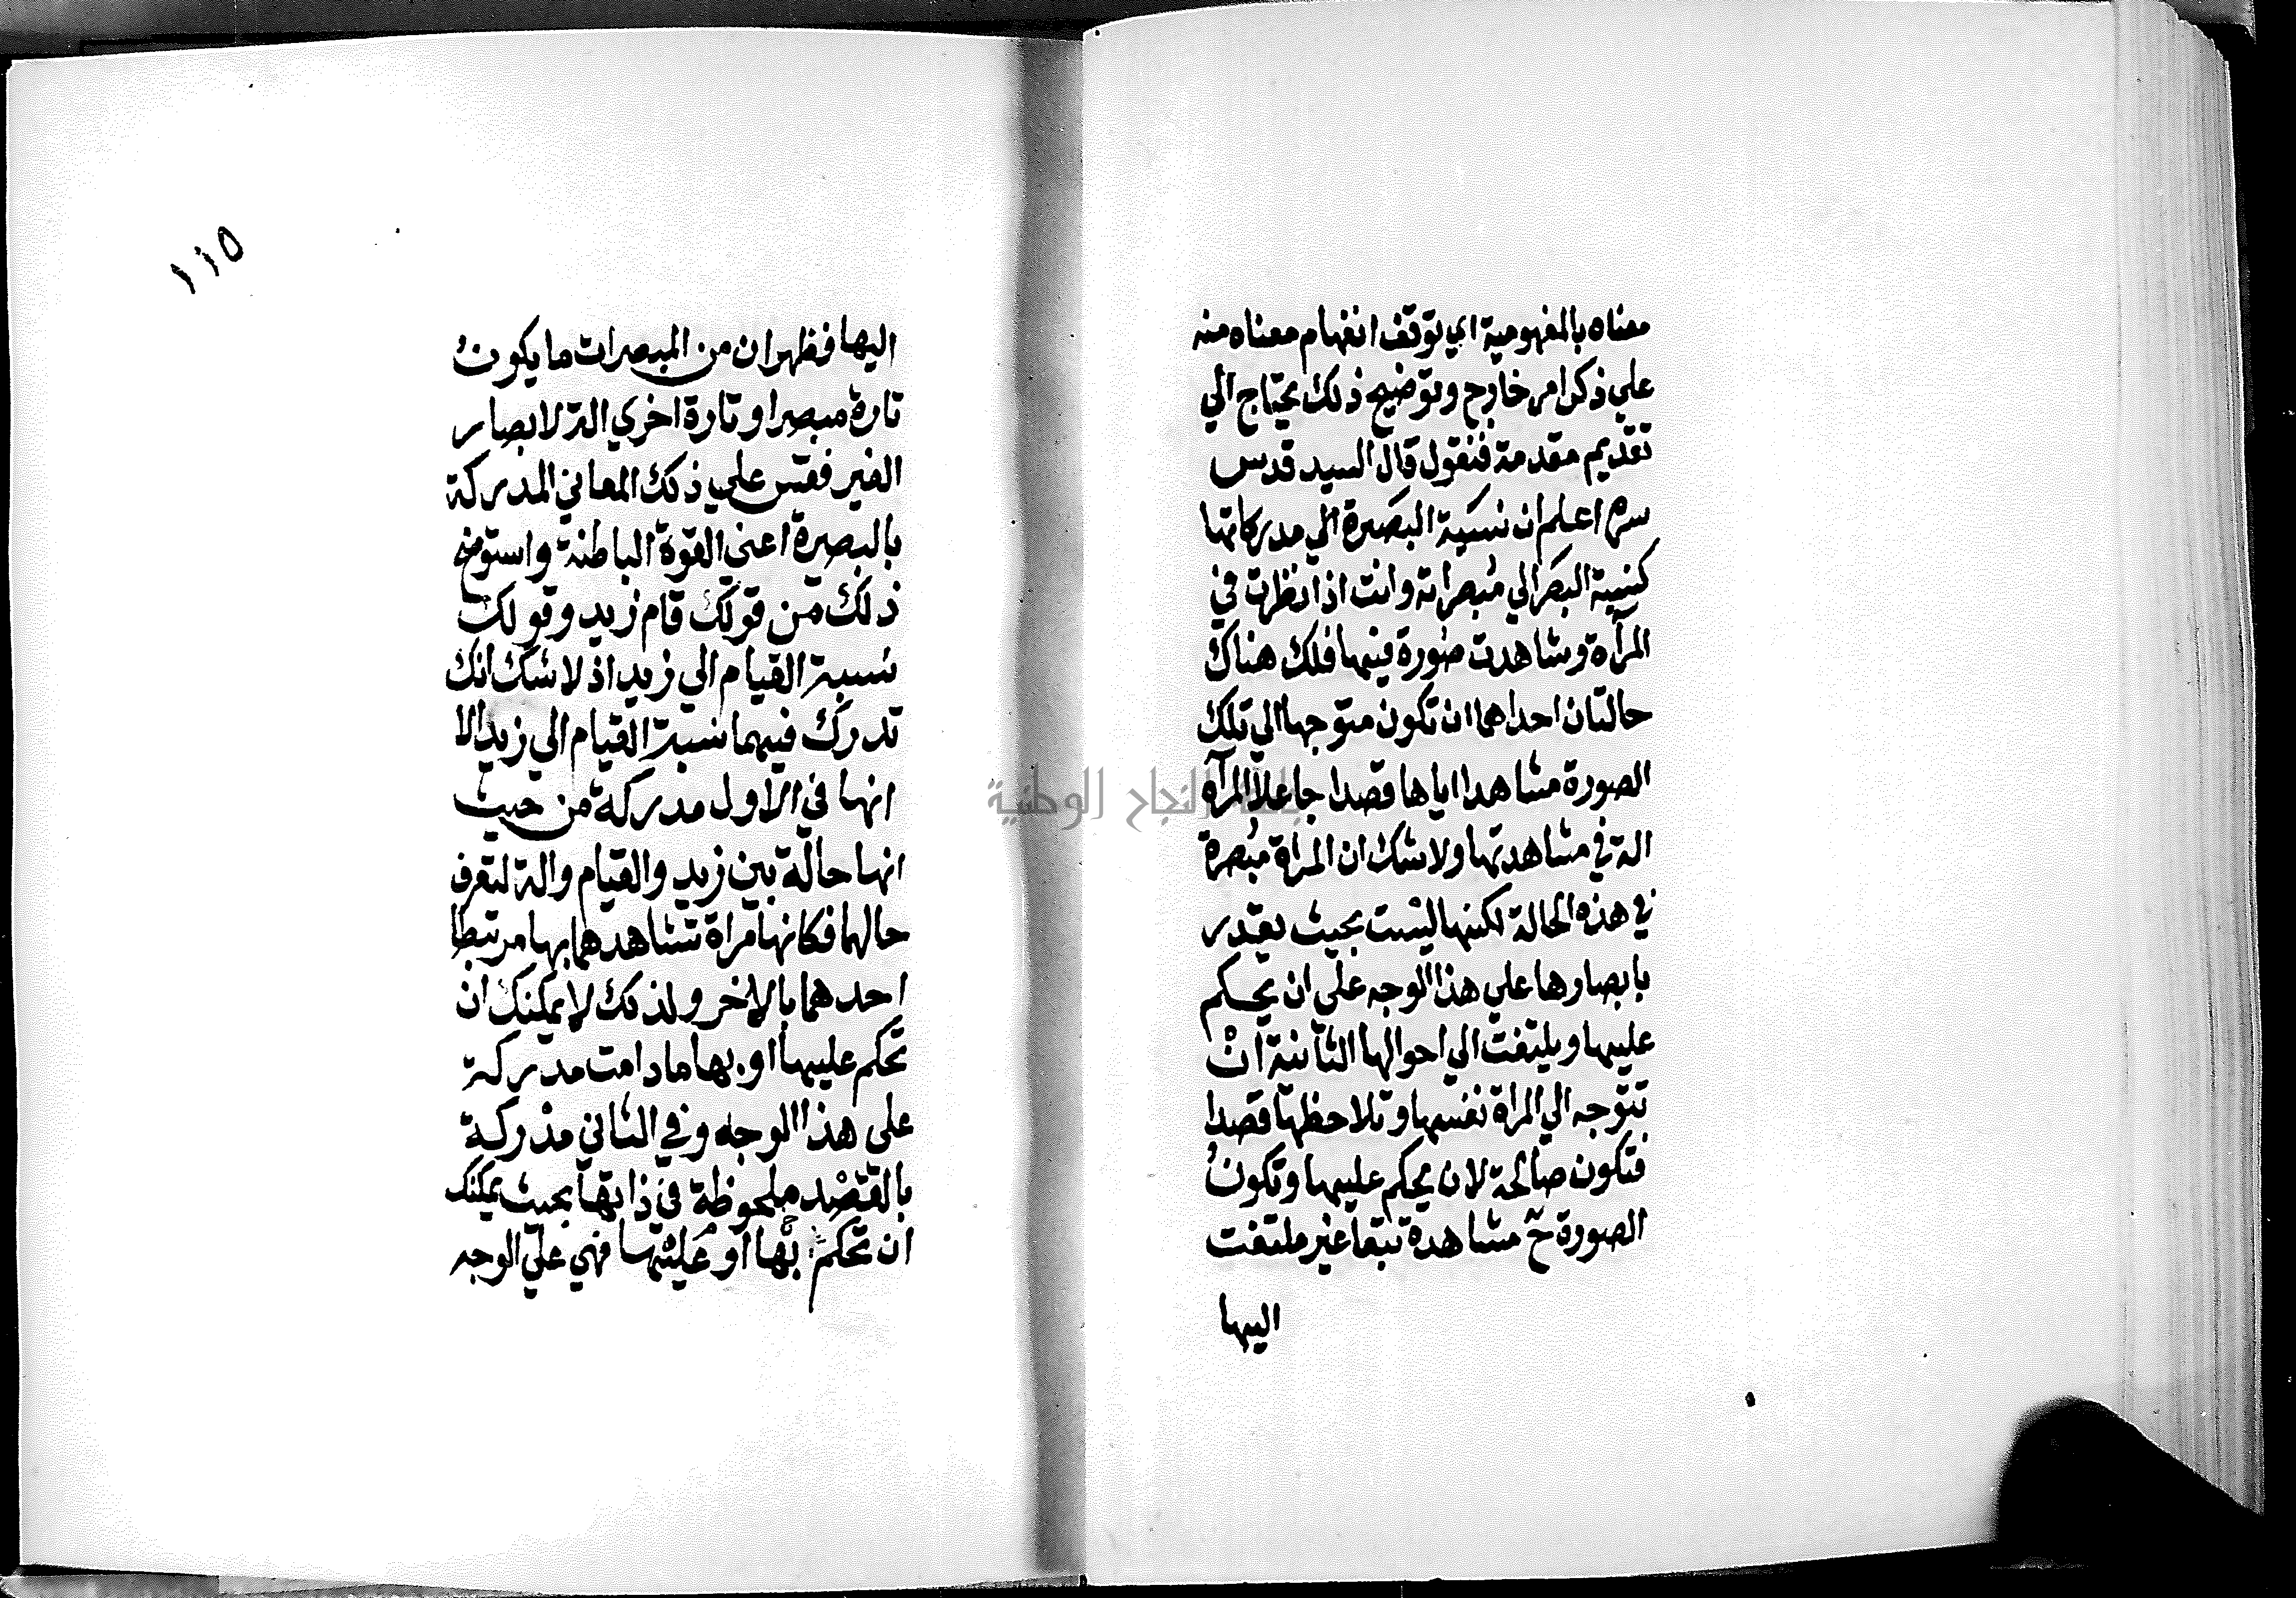 معناه بالمفهومية اي توقف انفهام معناه منه
علي ذكر امر خارج وتوضيح ذلك يحتاج الي
تقديم مقدمة فنقول قال السيد قدس
سره اعلم ان نسبة البصيرة الي مدركاتها
كنسبة البصر الي مبصراته وانت اذا نظرت في
المرآة وشاهدت صورة فيها فلك هناك
حالتان احداهما ان تكون متوجها الي تلك
الصورة مشاهدا اياها قصدا جاعلا المرآة
الة في مشاهدتها ولا شك ان المراة مبصرة
في هذه الحالة لكنها ليست بحيث تقدر
بابصارها علي هذا الوجه على ان يحكم
عليها ويلتفت الي احوالها الثانية ان
تتوجه الي المراة نفسها وتلاحظها قصدا
فتكون صالحة لان يحكم عليها وتكون
الصورة ح مشاهدة تبعا غير ملتفت
اليها
١١٥
اليها فظهر ان من المبصرات ما يكون
تارة مبصرا وتارة اخري الة لابصار
الغير فقس علي ذلك المعاني المدركة
بالبصيرة اعني القوة الباطنة واستوضح
ذلك من قولك قام زيد وقولك
نسبة القيام الي زيد اذ لا شك انك
تدرك فيهما نسبة القيام الي زيد الا
انها في الاول مدركة من حيث
انها حالة بين زيد والقيام والة لتعرف
حالهما فكانها مراة تشاهدهما بها مرتبطا
احدهما بالاخر ولذلك لا يمكنك ان
تحكم عليها او بها ما دامت مدركة
على هذا الوجه وفي الثاني مدركة
بالقصد ملحوظة في ذاتها بحيث يمكنك
ان تحكم بها او عليها فهي علي الوجه
جامعة النجاح الوطنية